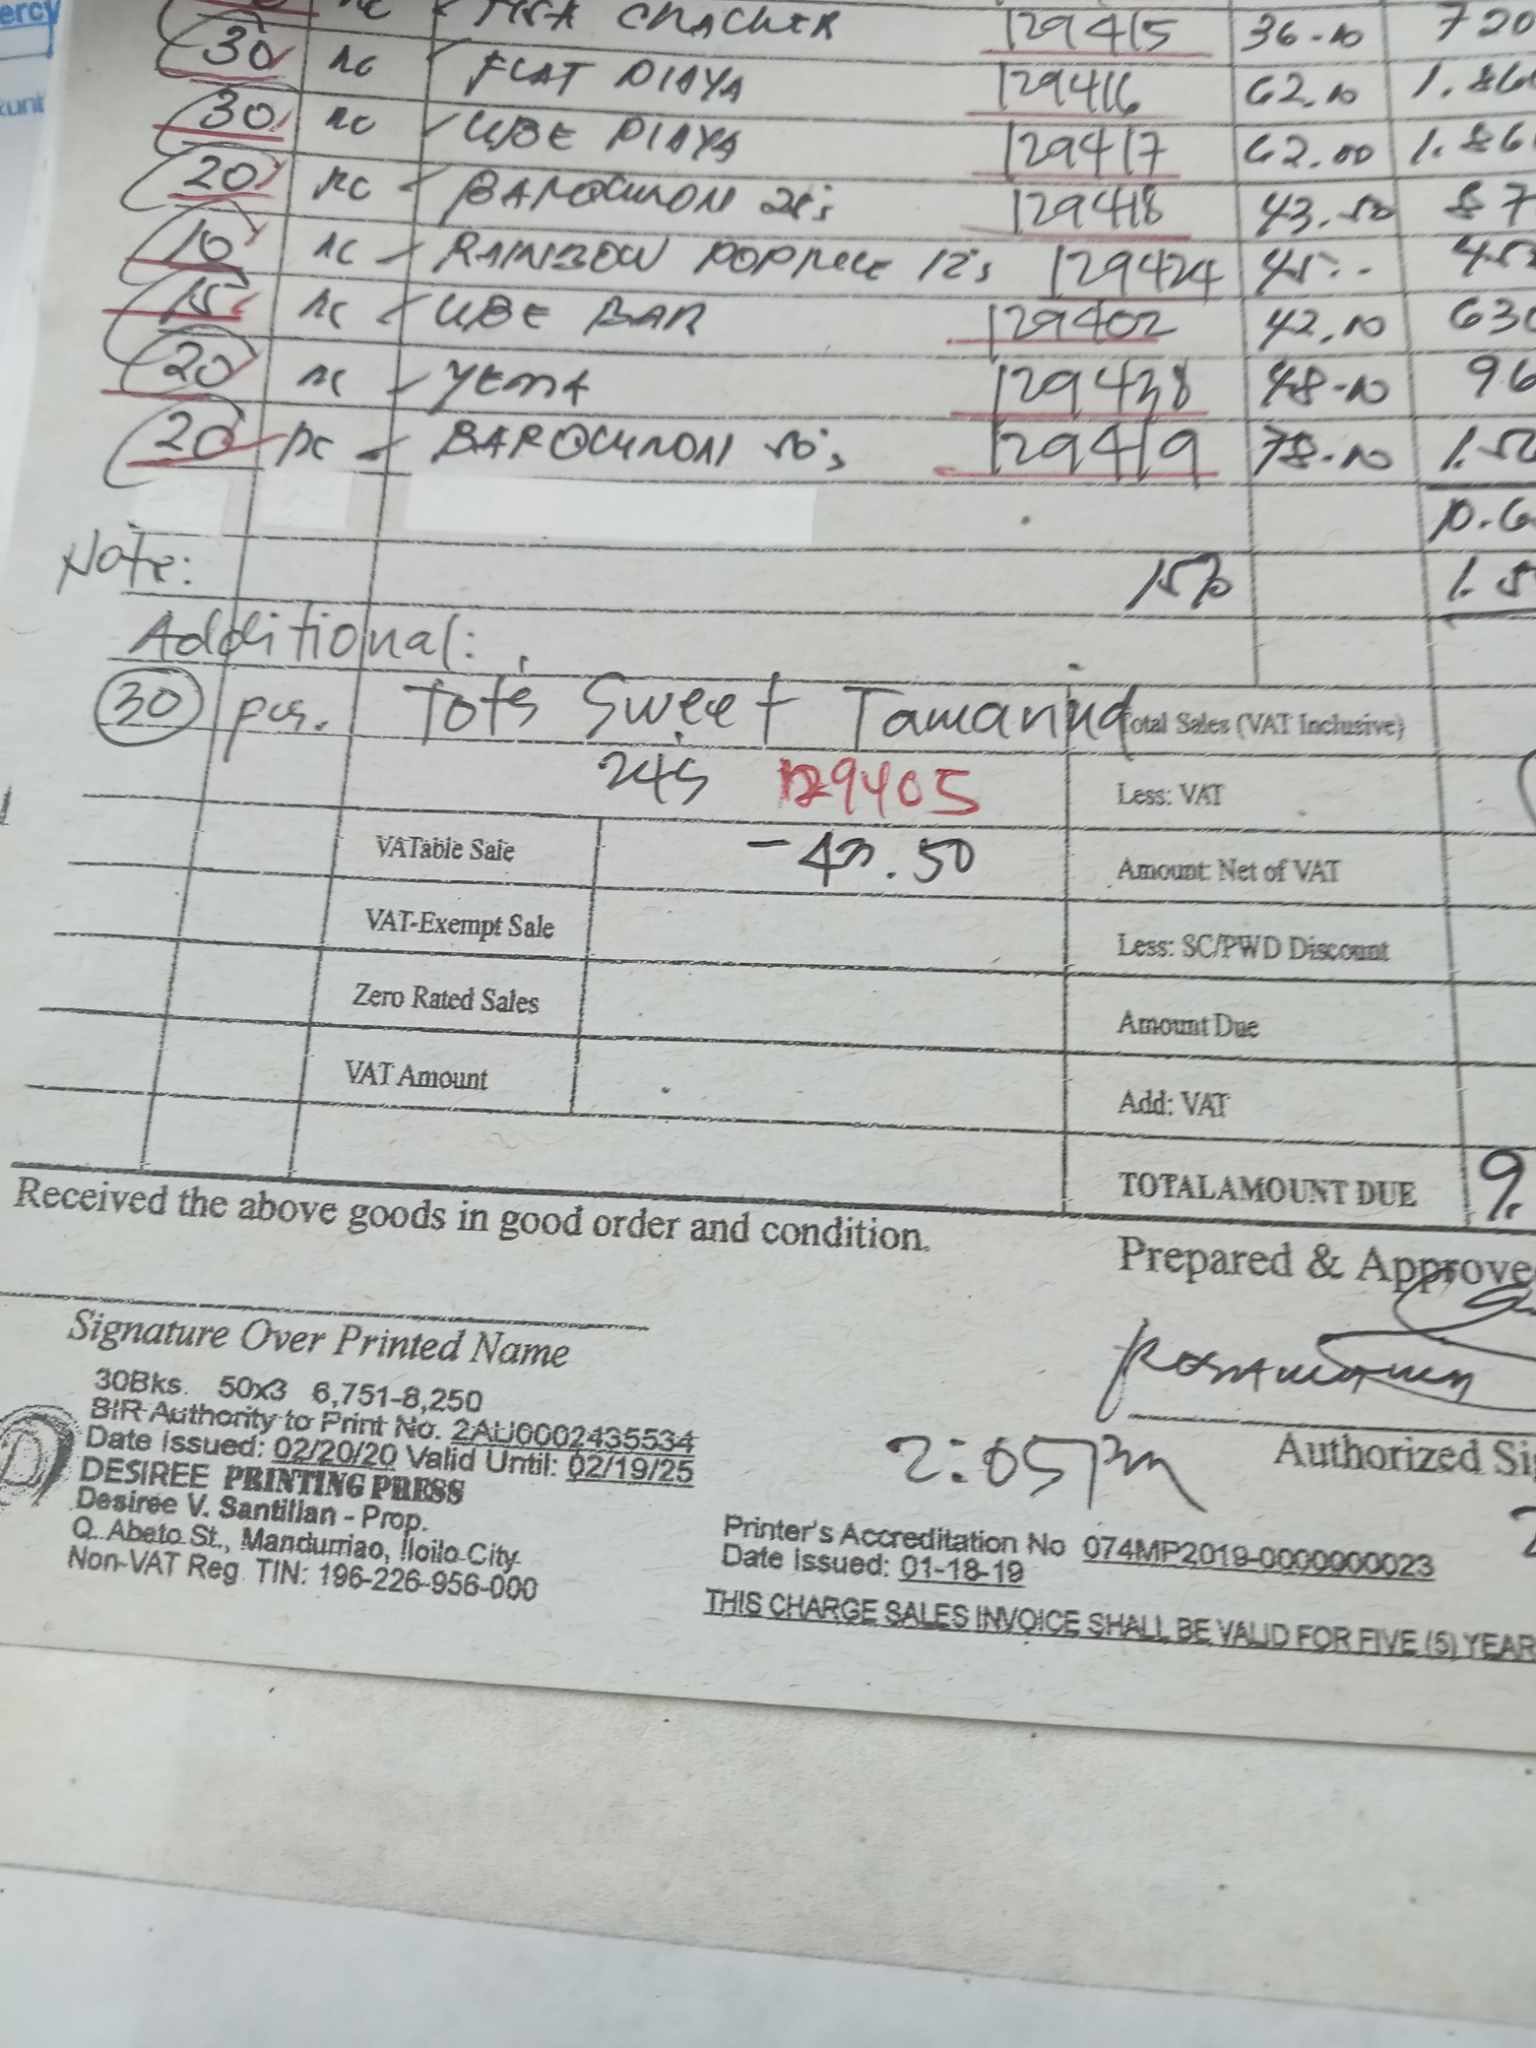 ercy
CRACKER 129415 36.00 720
30 pc FLAT PIAYA 129416 62.00 1.860
kunt
30 pc UBE PIAYA 129417 62.00 1.86
20 pc BAROQUILLON 28's 129418 43.50 87
10 pc RAINBOW 12's 129424 45.- 45
15 pc UBE BAR 129402 42.00 630
20 pc YEMA 129438 48.00 96
20 pc BAROQUILLON 50's 129419 78.00 1.5
10.6
Note: 15% 1.5
Additional:
30 pcs. Tots Sweet Tamarind
Total Sales (VAT Inclusive)
24s 129405
Less: VAT
VATable Sale -43.50
Amount: Net of VAT
VAT-Exempt Sale
Less: SC/PWD Discount
Zero Rated Sales
Amount Due
VAT Amount
Add: VAT
TOTAL AMOUNT DUE 9.
Received the above goods in good order and condition.
Prepared & Approve
Signature Over Printed Name
30Bks. 50x3 6,751-8,250
BIR Authority to Print No. 2AU0002435534
Date Issued: 02/20/20 Valid Until: 02/19/25
DESIREE PRINTING PRESS
Desiree V. Santillan - Prop.
Q. Abeto St., Mandurriao, Iloilo City
Non-VAT Reg. TIN: 196-226-956-000
2:05pm
Authorized Si
Printer's Accreditation No 074MP2019-0000000023
Date Issued: 01-18-19
THIS CHARGE SALES INVOICE SHALL BE VALID FOR FIVE (5) YEAR